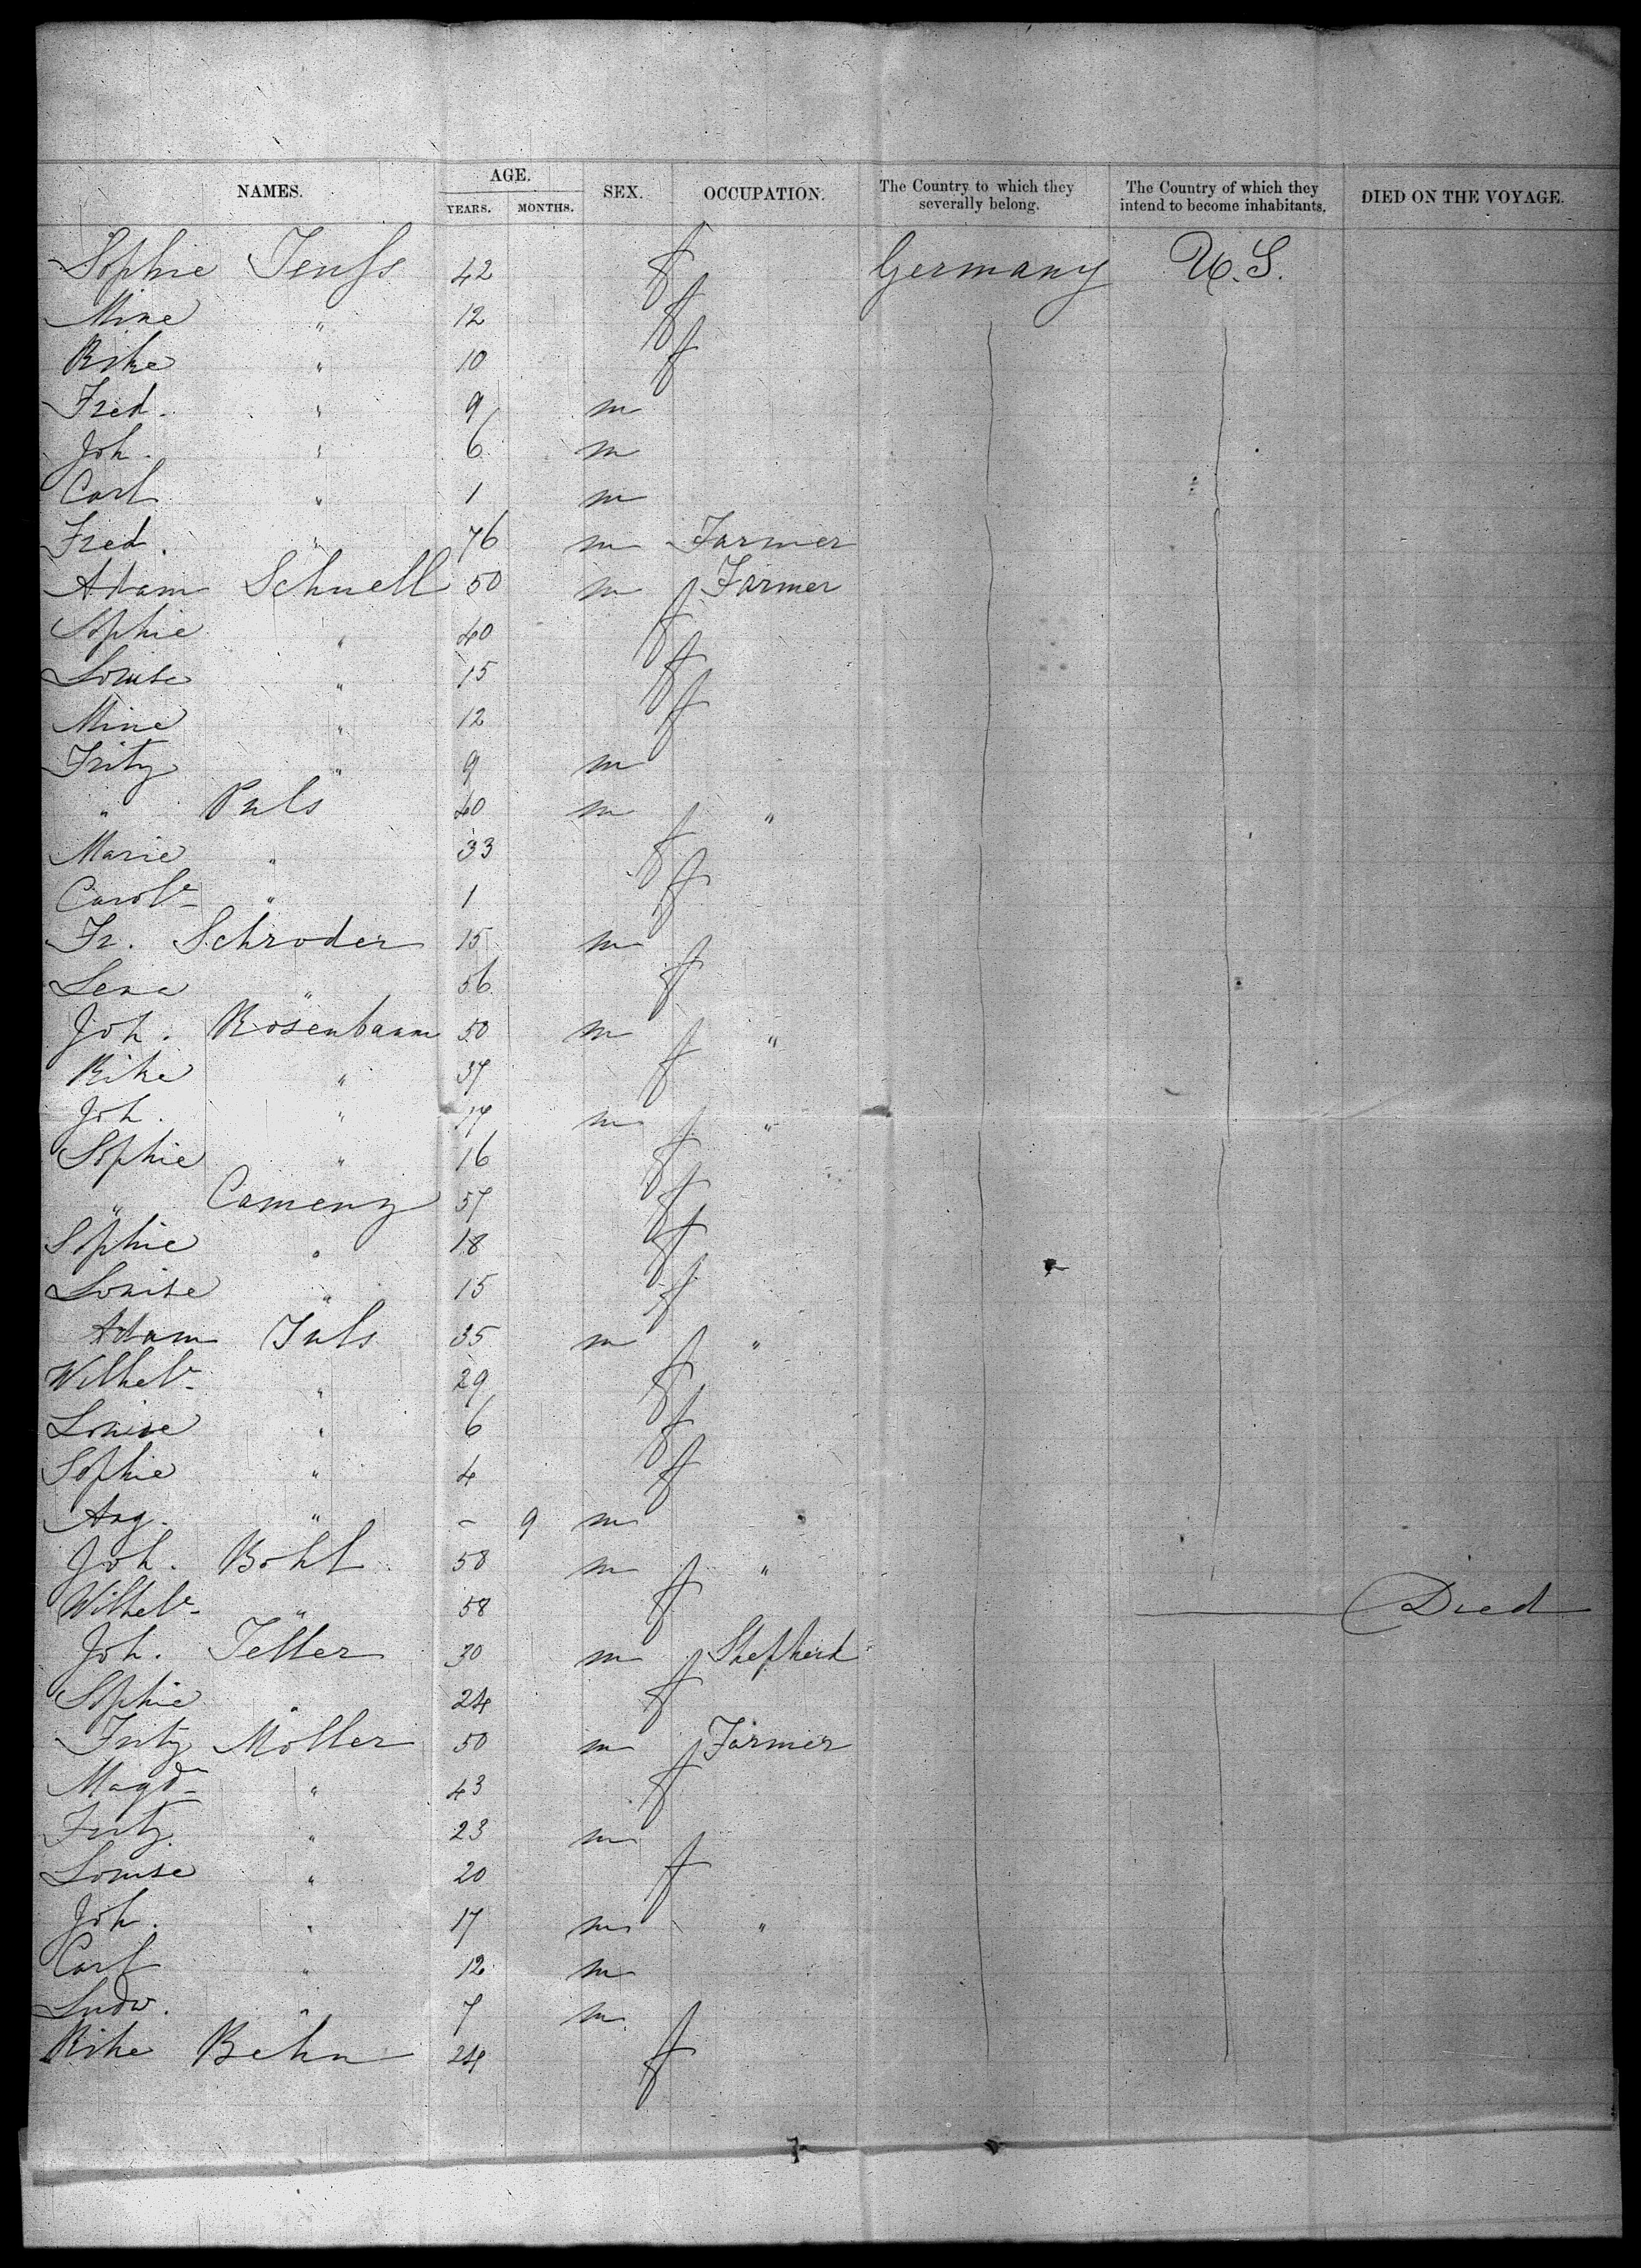 NAMES. AGE. YEARS. MONTHS. SEX. OCCUPATION. The Country to which they severally belong. The Country of which they intend to become inhabitants. DIED ON THE VOYAGE.
Sophie Jenss 42 f Germany U.S.
Mine " 12 f
Rike " 10 f
Fred. " 9 m
Joh. " 6 m
Carl " 1 m
Fred. " 76 m Farmer
Adam Schnell 50 m Farmer
Sophie " 40 f
Louise " 15 f
Mine " 12 f
Fritz " 9 m
" Puls 40 m "
Marie " 33 f
Carole " 1 f
Fr. Schroder 15 m
Lena " 56 f
Joh. Rosenbaum 50 m "
Rike " 37 f
Joh. " 17 m "
Sophie " 16 f
" Camenz 57 f
Sophie " 18 f
Louise " 15 f
Adam Juls 35 m "
Wilhele " 29 f
Louise " 6 f
Sophie " 4 f
Aug. " - 9 m
Joh. Bohl 58 m "
Wilhele " 58 f Died
Joh. Teller 30 m Shepherd
Sophie " 24 f
Fritz Moller 50 m Farmer
Magdn " 43 f
Fritz " 23 m
Louise " 20 f
Joh. " 17 m "
Carl " 12 m
Ludw. " 7 m
Rike Behn 24 f